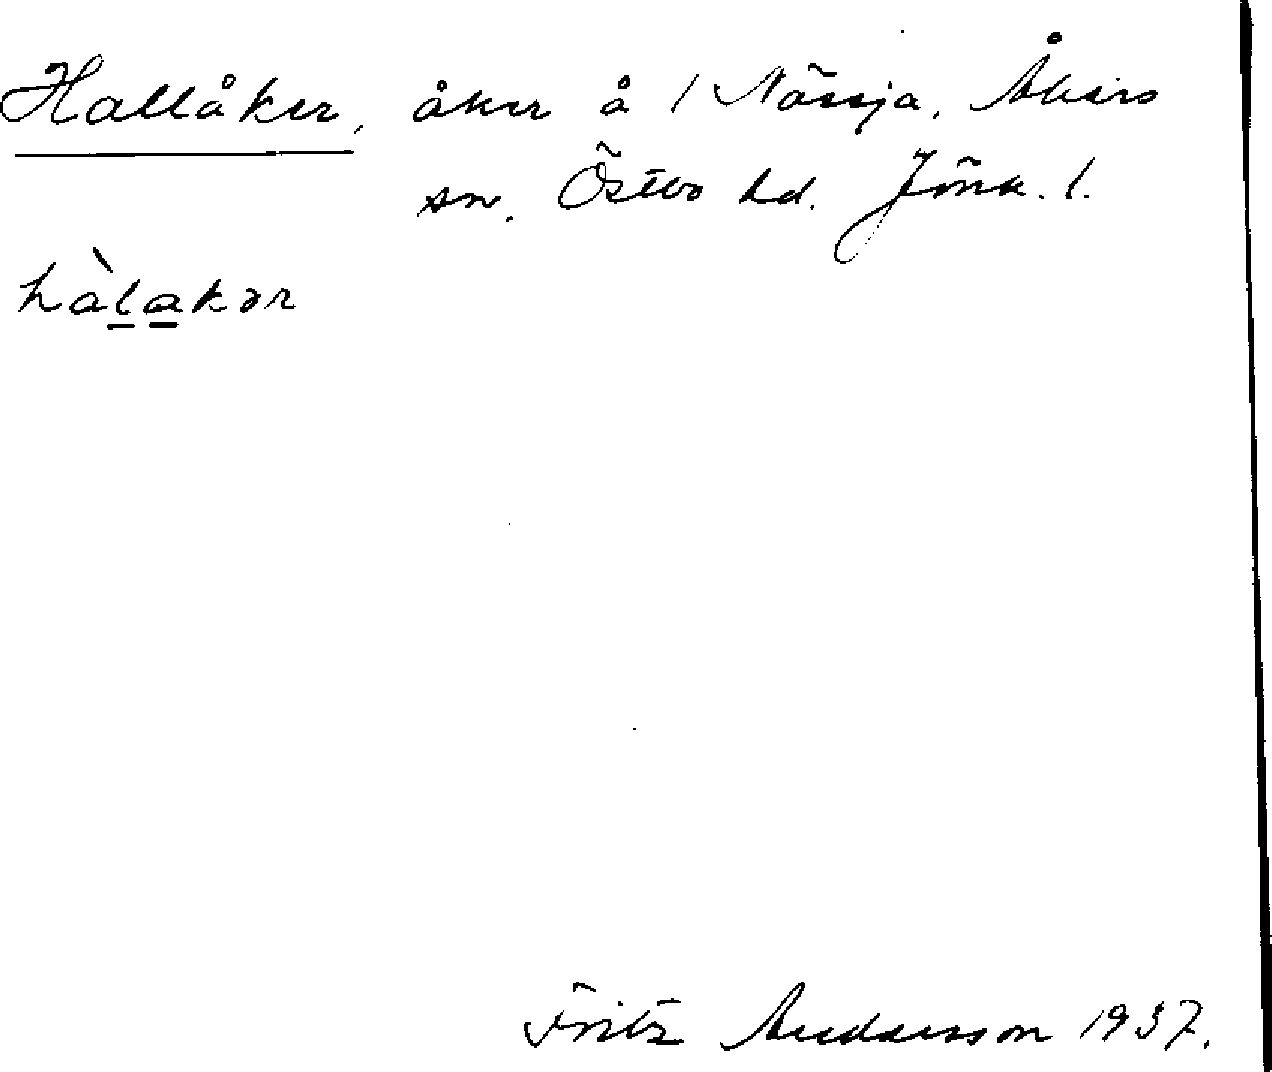 Hallåker, åker å 1 Nässja, Åkers
sn. Östbo hd. Jönk. l.
hàlakər
Fritz Andersson 1937.